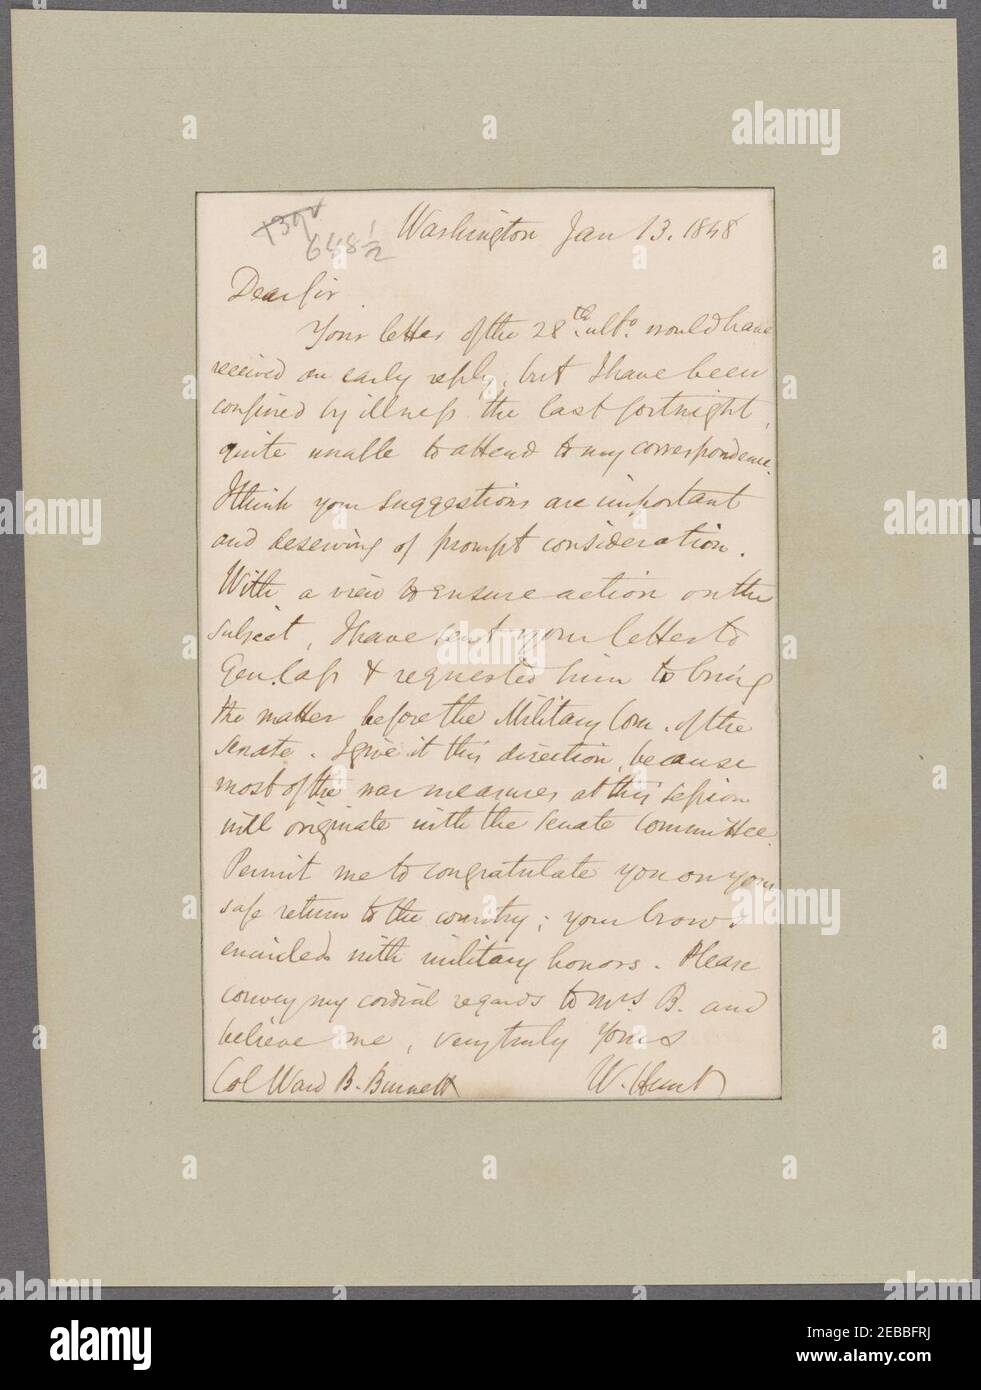 648 1/2
Washington Jan 13. 1848
Dear Sir
Your letter of the 28th. ulto. would have
received an early reply, but I have been
confined by illness the last fortnight,
quite unable to attend to my correspondence.
I think your suggestions are important
and deserving of prompt consideration.
With a view to ensure action on the
subject, I have sent your letter to
Gen. Cass & requested him to bring
the matter before the Military Com. of the
Senate. I give it this direction, because
most of the war measures at this session
will originate with the Senate Committee.
Permit me to congratulate you on your
safe return to the country; your brows
encircled with military honors. Please
convey my cordial regards to Mrs B. and
believe me, very truly Yours
Col Ward B. Burnett W. Hunt
alamy
a
Image ID: 2EBBFRJ
www.alamy.com